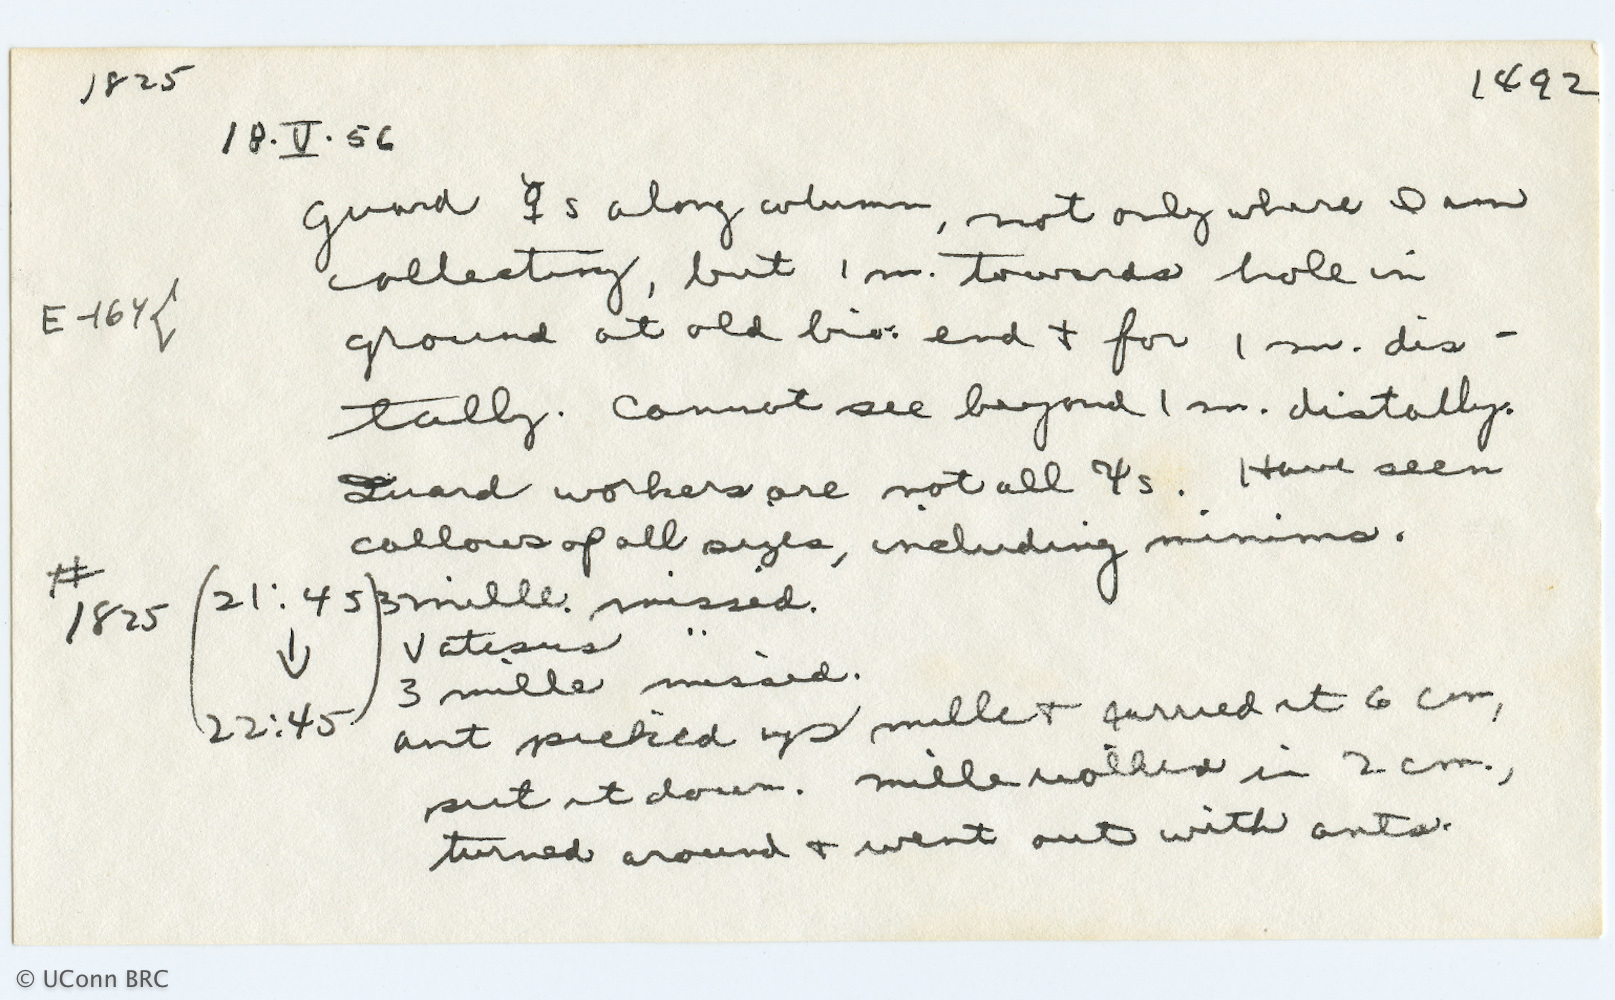 1825
1492
18.V.56
Guard ☿s along column, not only where I am
collecting, but 1 m. towards hole in
E-164{
ground at old biv. end + for 1 m. dis-
tally. Cannot see beyond 1 m. distally.
Guard workers are not all ♃s. Have seen
callows of all sizes, including minims.
#
1825 (21:45) 3 mille. missed.
↓ Vatesus "
3 mille missed.
22:45 ant picked up mille + carried it 6 cm,
put it down. Mille walked in 2 cm.,
turned around + went out with ants.
© UConn BRC